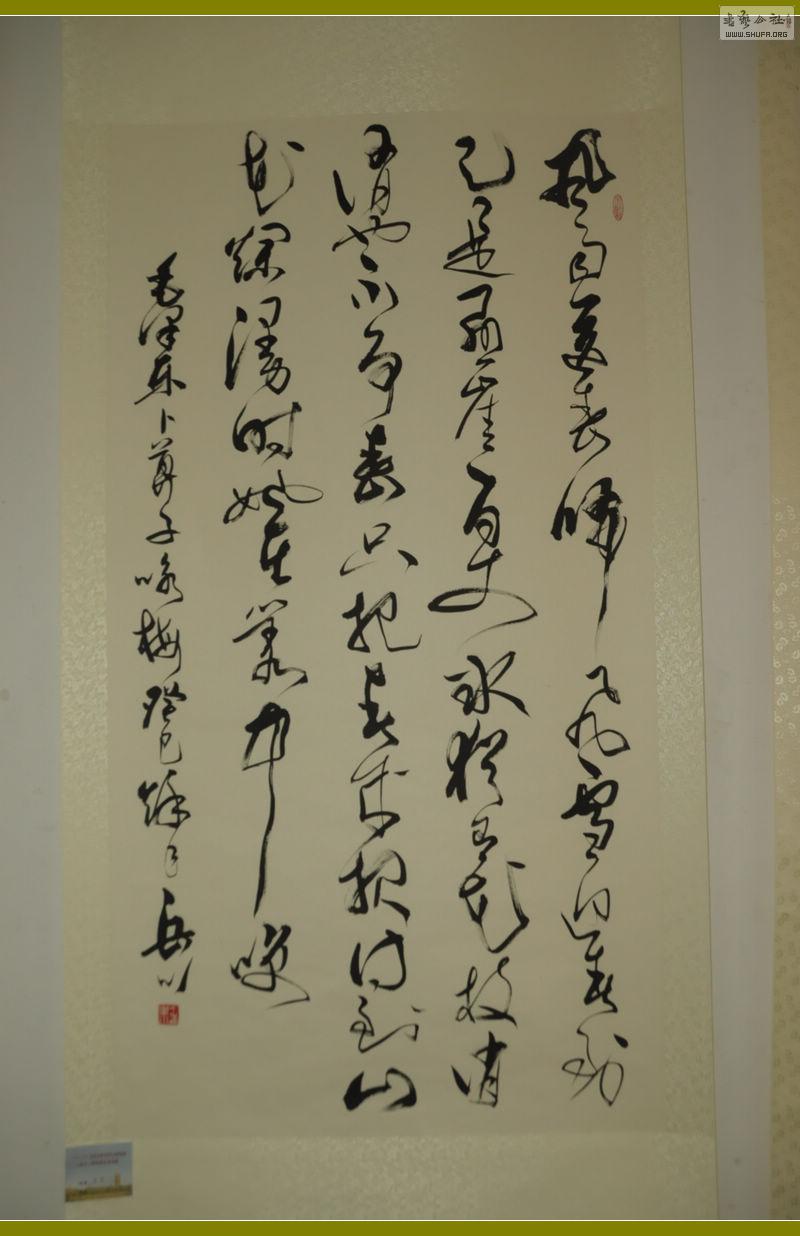 風雨送春歸飛雪迎春到
已是懸崖百丈冰猶有花枝俏
俏也不争春只把春来报待到山
花爛漫时她在叢中笑
毛澤东卜算子咏梅癸巳馀月岳川
書法公社
WWW.SHUFA.ORG